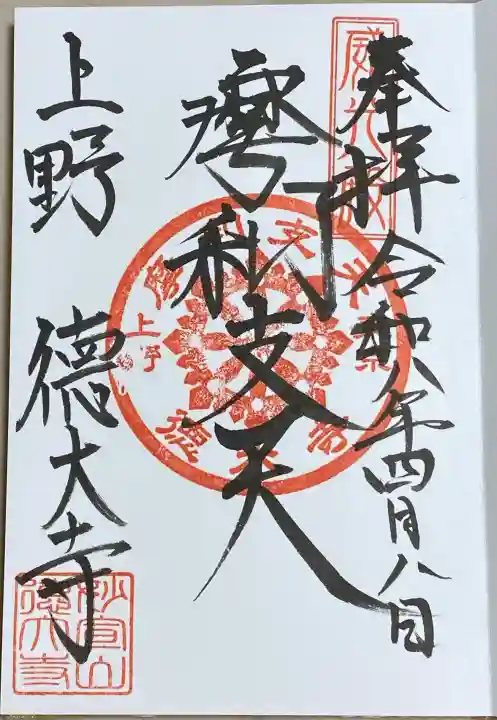 威光殿
奉拝 令和八年四月八日
摩利支天
摩利支天
上野
徳大寺
上野 徳大寺
妙宣山
徳大寺